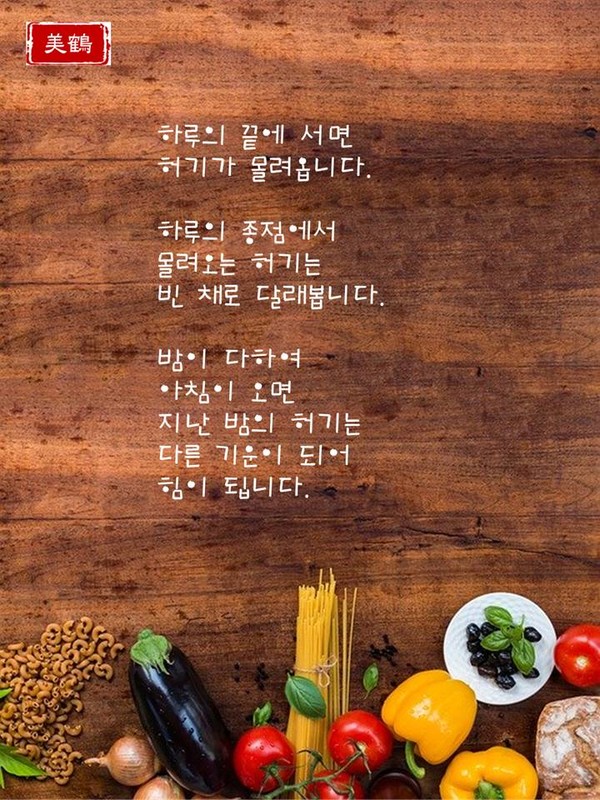 美鶴
하루의 끝에 서면
허기가 몰려옵니다.
하루의 종점에서
몰려오는 허기는
빈 채로 달래봅니다.
밤이 다하여
아침이 오면
지난 밤의 허기는
다른 기운이 되어
힘이 됩니다.